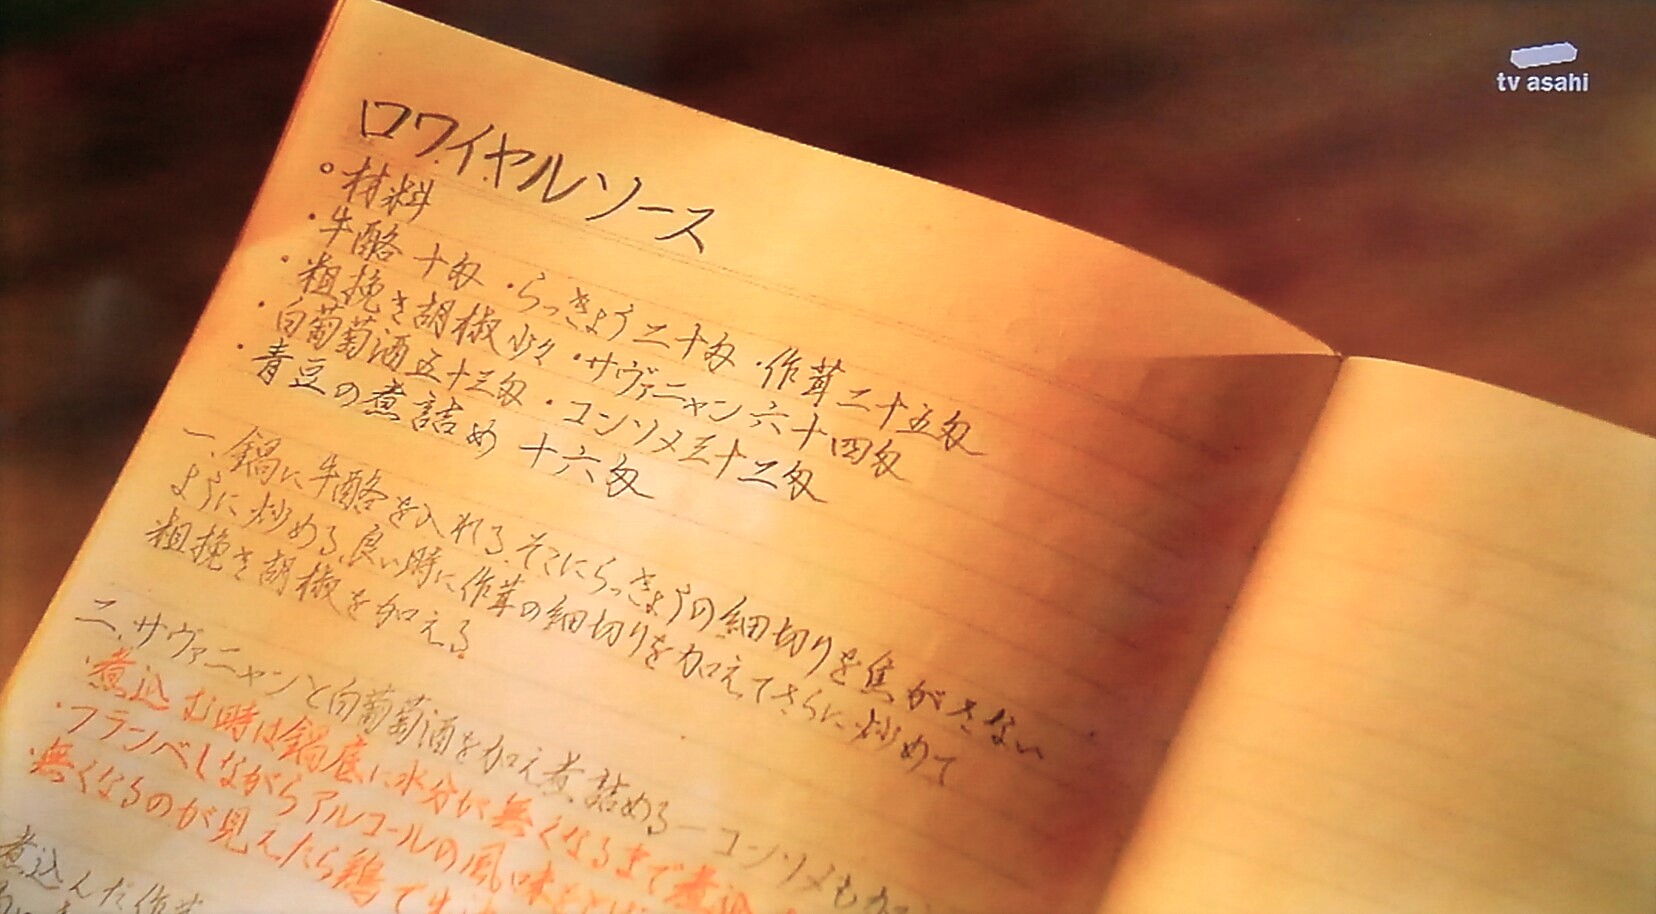 tv asahi
ロワイヤルソース
○材料
・牛酪 十匁 ・らっきょう二十匁 ・作茸二十五匁
・粗挽き胡椒少々 ・サヴァニャン六十四匁
・白葡萄酒五十三匁 ・コンソメ三十二匁
・青豆の煮詰め 十六匁
一.鍋に牛酪を入れる.そこにらっきょうの細切りを焦がさない
ように炒める.良い時に作茸の細切りを加えてさらに炒めて
粗挽き胡椒を加える.
二.サヴァニャンと白葡萄酒を加え煮詰める―コンソメも加
・煮込む時は鍋底に水分が無くなるまで煮込
・フランベしながらアルコールの風味を
・無くなるのが見えたら鶏で
煮込んだ作茸